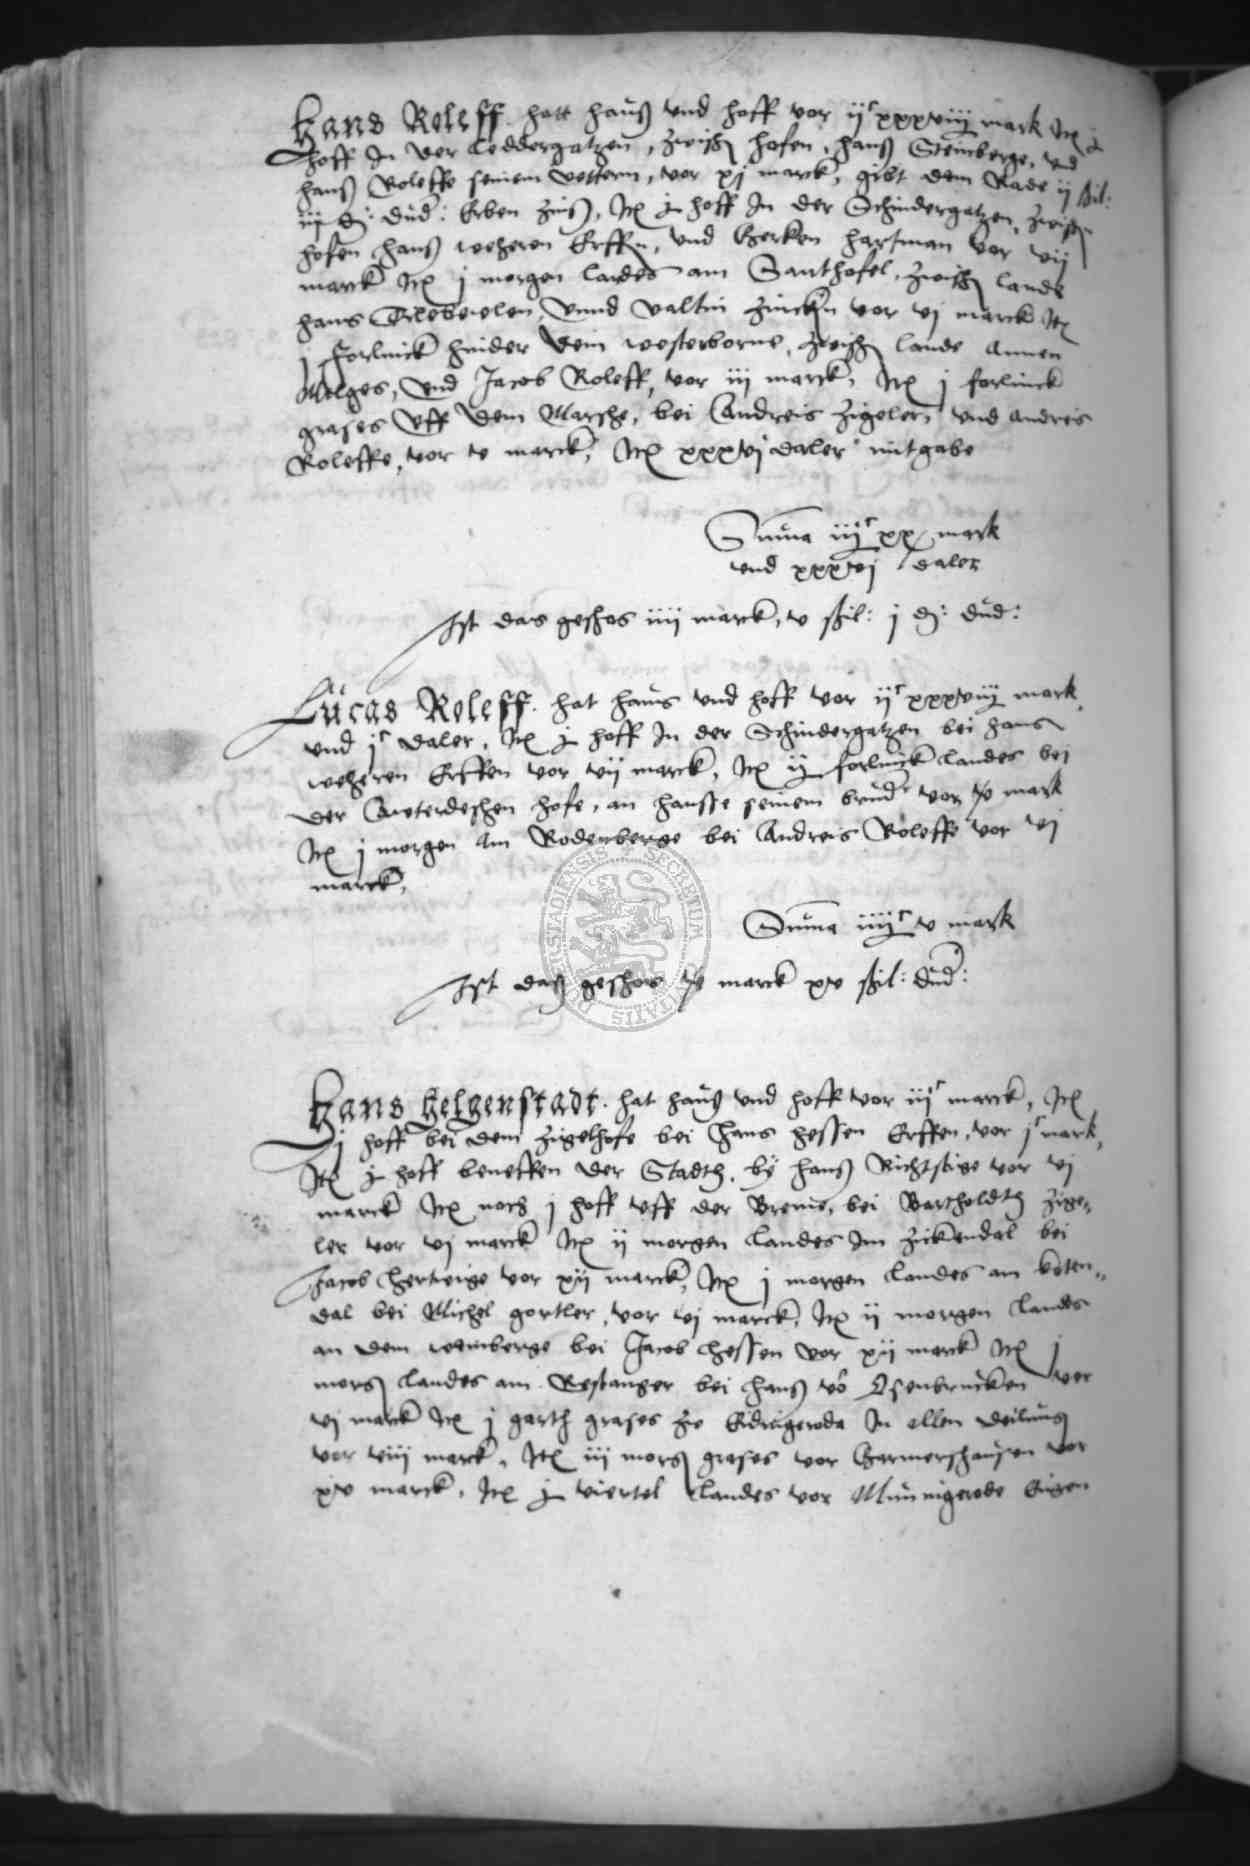 Hans Roleff. hatt hauß vnd hoff vor ijᶜ xxxviij mark Itē j
hoff In der Leddergatzen, zwischē hofen, hanß Steinberge, vnd
hanß Roleffe seinem vettern, vor xj marck, gibt dem Rade ij ßil:
iij d: dud: Erben zinß, Itē j hoff In der Schindergatzen, zwischē
hofen hanß weheren Erffen, vnd Gerken hartman vor vij
marck Itē j morgen landes am Santhofel, zwischē lande
hans vnnd valtin vor vj marck Itē
j forlinck hinder dem westerborne, zwischē lande Annen
Molges, vnd Jacob Roleff, vor iij marck, Itē j forlinck
grases vff dem Marsche, bei Andreis zigeler, vnd andreis
Roleffe, vor v marck, Itē xxxvj daler mitgabe
Suma iijᶜ xx mark
vnd xxxvj daler
Ist das geschos iiij marck, v ßil: j d: dud:
Lucas Roleff. hat haus vnd hoff vor ijᶜ xxxviij mark
vnd jᶜ daler, Itē j hoff In der Schindergatzen bei hans
weheren Erffen vor vij marck, Itē ij forlinck landes bei
der hofe, an hansse seinem brudr vor x mark
Itē j morgen Am Rodenberge bei Andreis Roleffe vor vj
marck,
Suma iiijᶜ v mark
Ist daß geschos v marck xv ßil: dud:
Hans helgenstadt. hat hauß vnd hoff vor iijᶜ marck, Itē
j hoff bei dem zigelhofe bei hans hessen Erffen, vor jᶜ mark,
Itē j hoff beneffen der Stadth, by hanß Richtstige vor vj
marck Itē noch j hoff vff der Breme, bei Bartholdth zige-
ler vor vj marck Itē ij morgen landes Im zickendal bei
Jacob hertwige vor xij marck, Itē j morgen landes am koten-
dal bei Michel gortler, vor vj marck, Itē ij morgen landes
an dem weinberge bei Jacob hessen vor xij marck Itē j
morgē landes am bei hanß vō Isenbrucken vor
vj marck Itē j garth grases zu In allen deilung
vor viij marck, Itē iij morgē grases vor Germershausen vor
xv marck, Itē j viertel landes vor Minnigerode Eigen